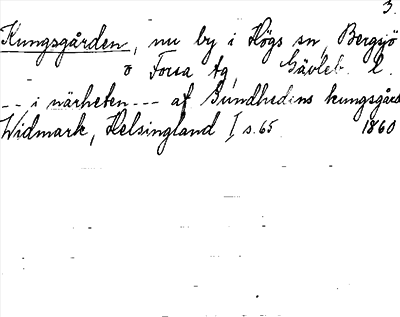 3.
Kungsgården, nu by i Högs sn, Bergsjö
o Forsa tg, Gävleb. l.
--- i närheten --- af Sundhedens kungsgård
Widmark, Helsingland I s. 65. 1860